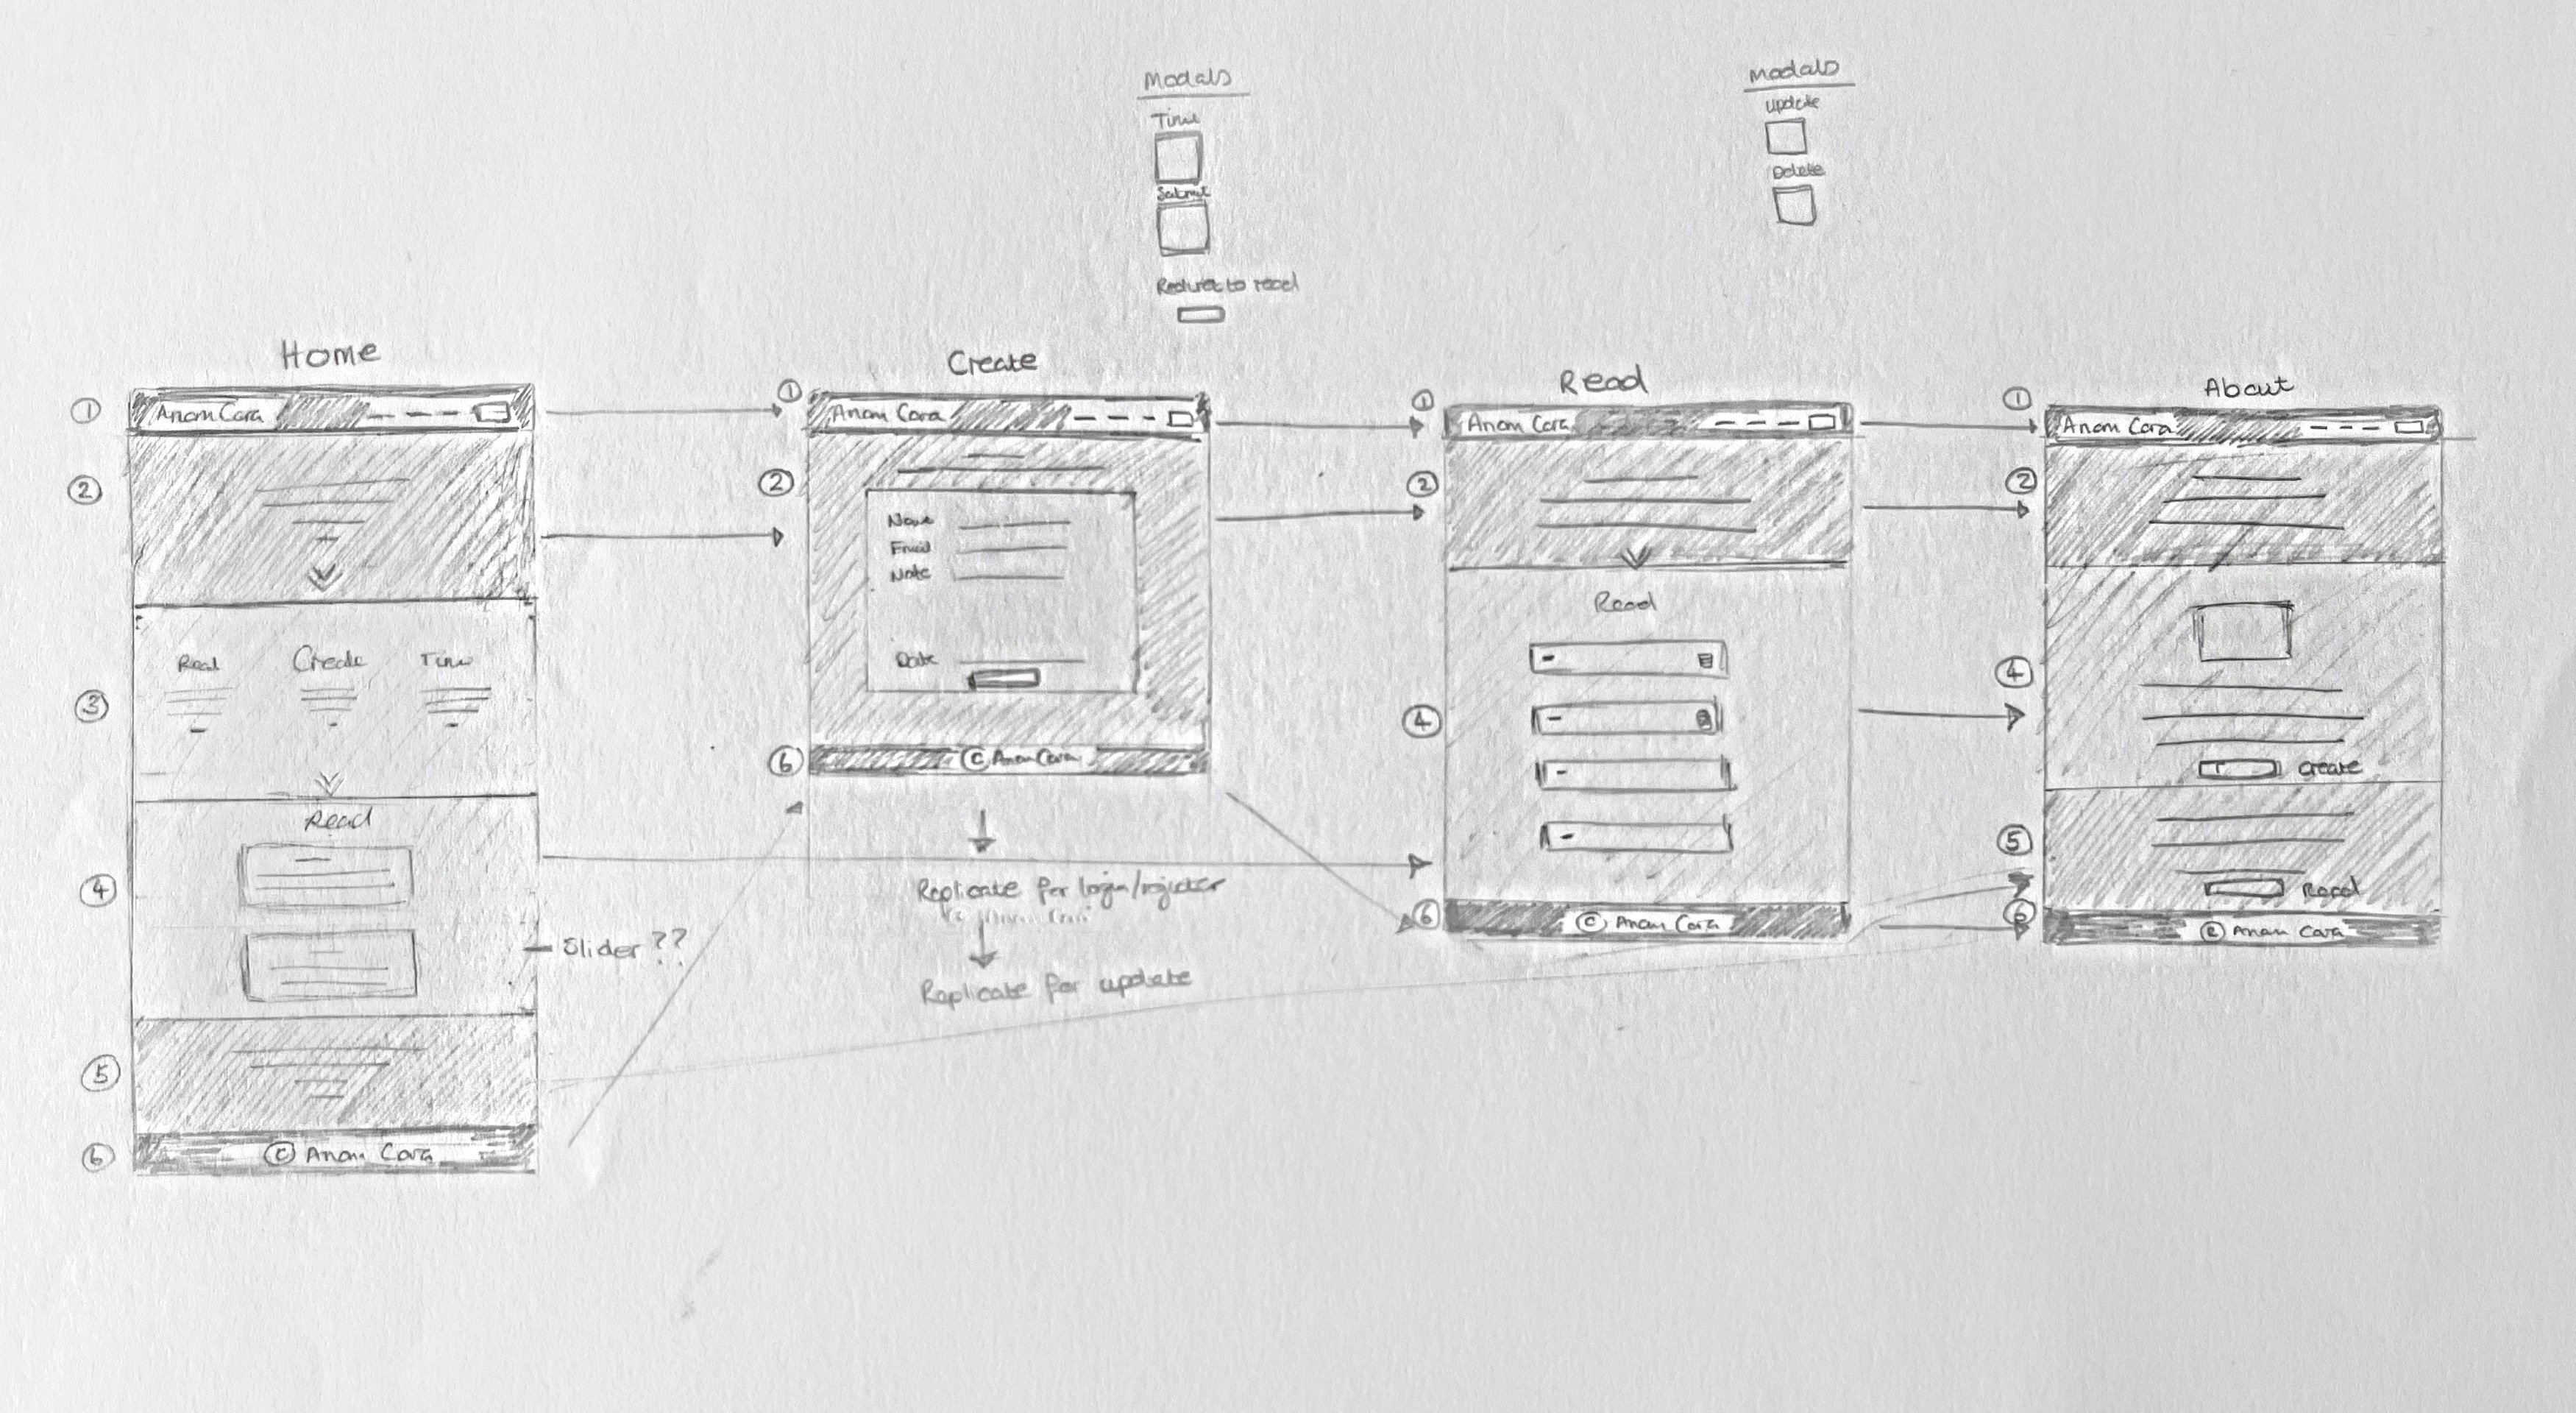 Modals
Time
Submit
Redirect to read
Modals
Update
Delete
Home
① Anam Cara
②
③
Read Create Time
④
Read
Slider ??
⑤
⑥ © Anam Cara
Create
① Anam Cara
②
Name
Email
Note
Date
⑥ © Anam Cara
Replicate for login/register
Replicate for update
Read
① Anam Cara
②
Read
④
⑥ © Anam Cara
About
① Anam Cara
②
④
Create
⑤
Read
⑥ © Anam Cara